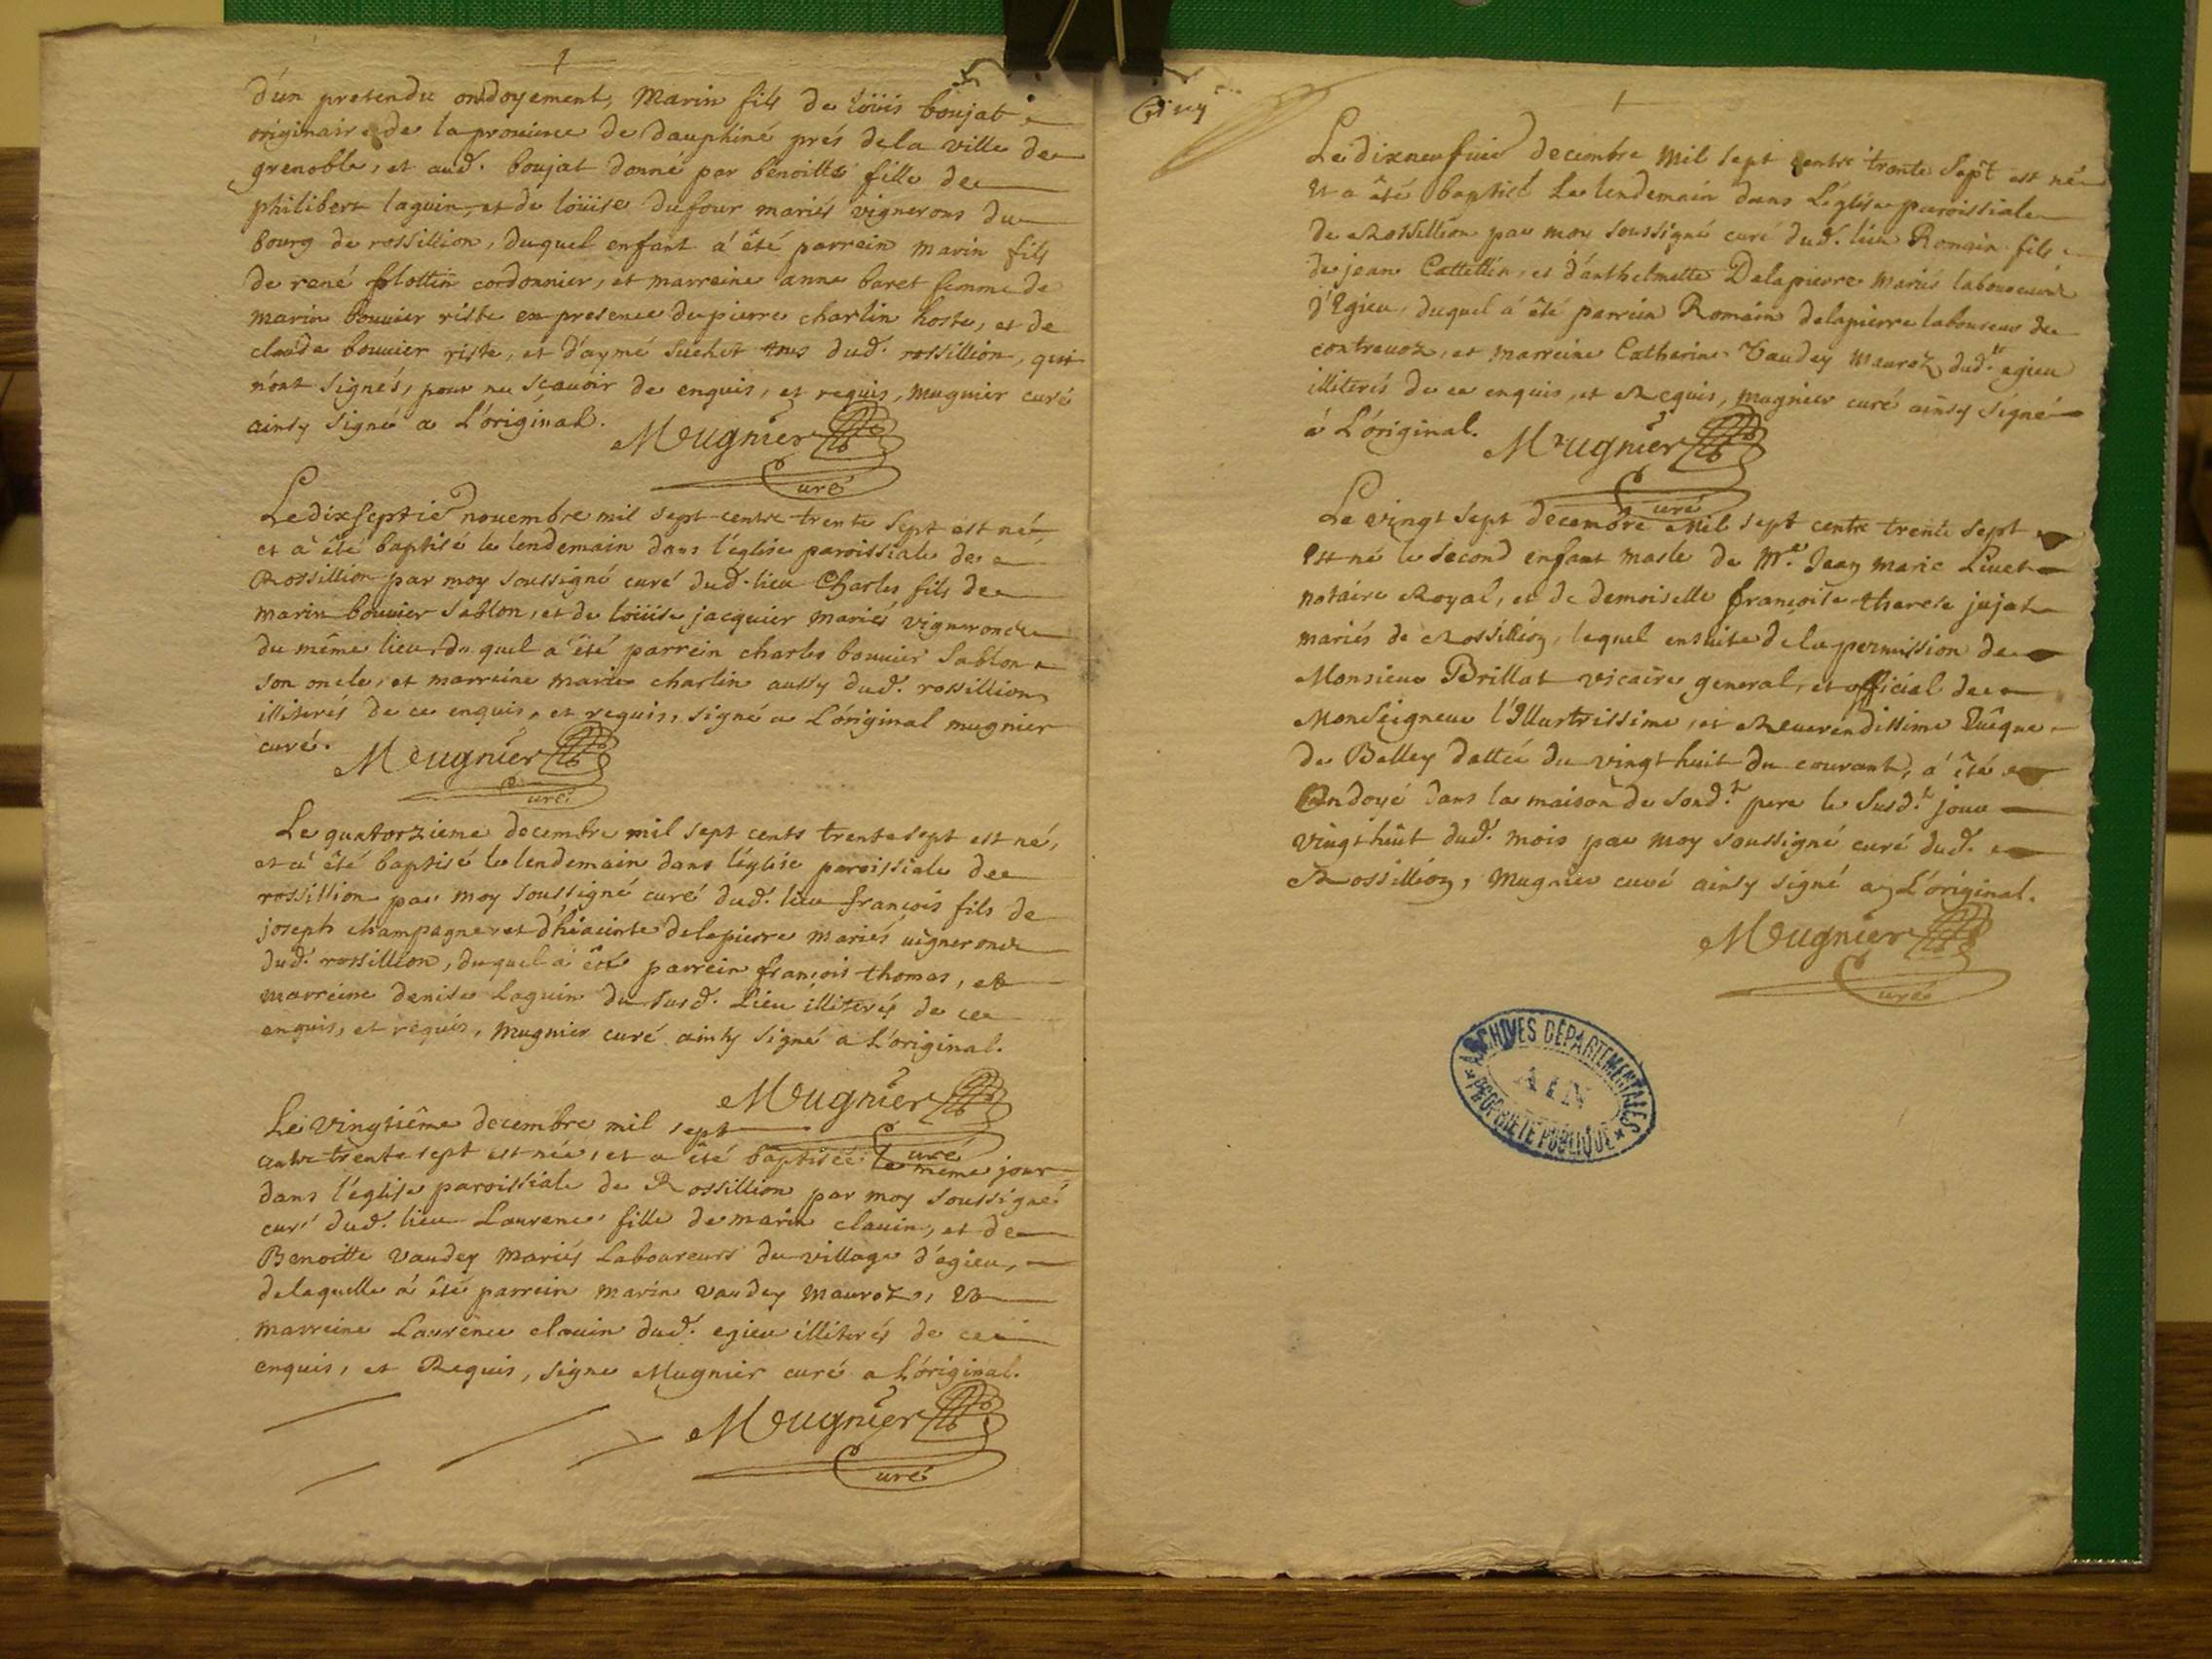 d'un pretendu ondoyement, Marin fils de loüis boujat
originaire de la prouince de dauphiné prés de la ville de
grenoble, et aud. boujat donné par benoitte fille de
philibert laguin, et de loüise dufour mariés vignerons du
bourg de rossillion, duquel enfant a' été parrein marin fils
de rené flottin cordonnier, et marreine anne baret femme de
marin bouuier riste en presence de pierre charlin hoste, et de
claude bouuier riste, et d'aymé suchet tous dud. rossillion, qui
n'ont signés, pour ne sçauoir de enquis, et requis, mugnier curé
ainsy signé a L'original.
Meugnier
Curé
Le dixseptie nouembre mil sept centz trente sept est né,
et a' été baptisé le lendemain dans l'église paroissiale de
Rossillion par moy soussigné curé dud. lieu Charles fils de
marin bouuier sablon, et de loüise jacquier mariés vignerons
du même lieu, du quel a été parrein charles bouuier Sablon
son oncle, et marreine marie charlin aussy dud. rossillion
illiterés de ce enquis, et requis, signé a L'original mugnier
curé.
Meugnier
Curé
Le quatorzieme decembre mil sept cents trente sept est né,
et a' été baptisé le lendemain dans l'église paroissiale de
rossillion par moy soussigné curé dud. lieu françois fils de
joseph champagne, et d'hiacinte delapierre mariés uignerons
dud. rossillion, duquel a' été parrein françois thomas, et
marreine denise Laguin du susd. Lieu illiterés de ce
enquis, et requis, mugnier curé ainsy signé a L'original.
Meugnier
Curé
Le vingtiême decembre mil sept
centz trente sept est née, et a été baptisée le même jour
dans l'église paroissiale de Rossillion par moy soussigné
curé dud. lieu Laurence fille de marin clauin, et de
Benoitte vaudey mariés Laboureurs du village d'egieu,
de laquelle a' été parrein marin vaudey mauroz, et
marreine Laurence clauin dud. egieu illiterés de ce
enquis, et Requis, signe Mugnier curé a L'original.
Meugnier
Curé
Le dixneufuie decembre mil sept centz trente Sept est né
et a été baptisé Le lendemain dans L'église paroissiale
de Rossillion par moy soussigné curé dud. lieu Romain fils
de jean Cattellin, et d'anthelmette Delapierre mariés laboureurs
d'Egieu, duquel á été parrein Romain delapierre laboureur de
contreuoz, et marreine Catherine Vaudey mauroz dud.t egieu
illiterés de ce enquis, et Requis, mugnier curé ainsy signé
á L'original.
Meugnier
Curé
Le vingt sept decembre mil sept centz trente sept
est né le second enfant masle de Mr. Jean marie Liuet
notaire Royal, et de demoiselle françoise therese jujat
mariés de Rossillion, lequel ensuite de la permission de
Monsieur Brillat vicaire general, et official de
Monseigneur l'Illustrissime, et Reuerendissime Euêque
de Belley dattée du vingt huit du courant, a' été
Ondoyé dans la maison de sond.t pere le susd.t jour
vingt huit dud. mois par moy soussigné curé dud.
Rossillion, mugnier curé ainsy signé a L'original.
Meugnier
Curé
ARCHIVES DÉPARTEMENTALES
AIN
* PROPRIÉTÉ PUBLIQUE *